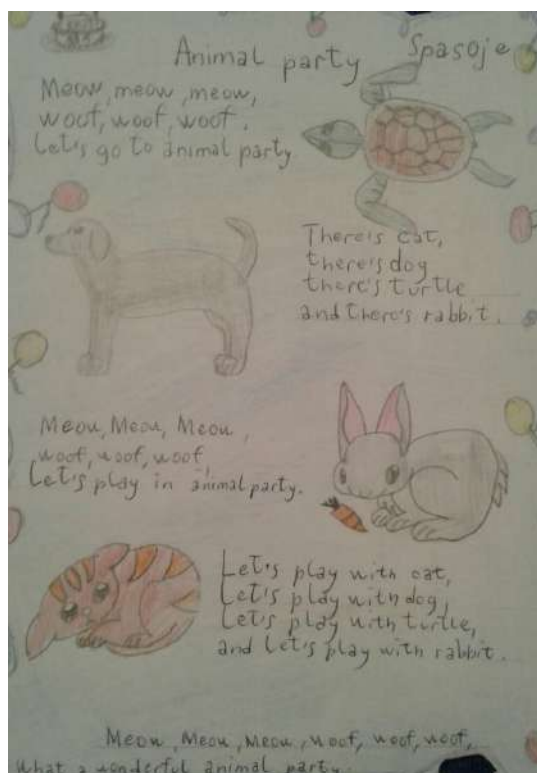 Animal party
Spasoje
Meow, meow, meow,
woof, woof, woof.
Let's go to animal party
There's cat,
there's dog
there's turtle
and there's rabbit.
Meow, Meow, Meow,
woof, woof, woof,
Let's play in animal party.
Let's play with cat,
Let's play with dog,
Let's play with turtle,
and Let's play with rabbit.
Meow, Meow, Meow, woof, woof, woof,
What a wonderful animal party.